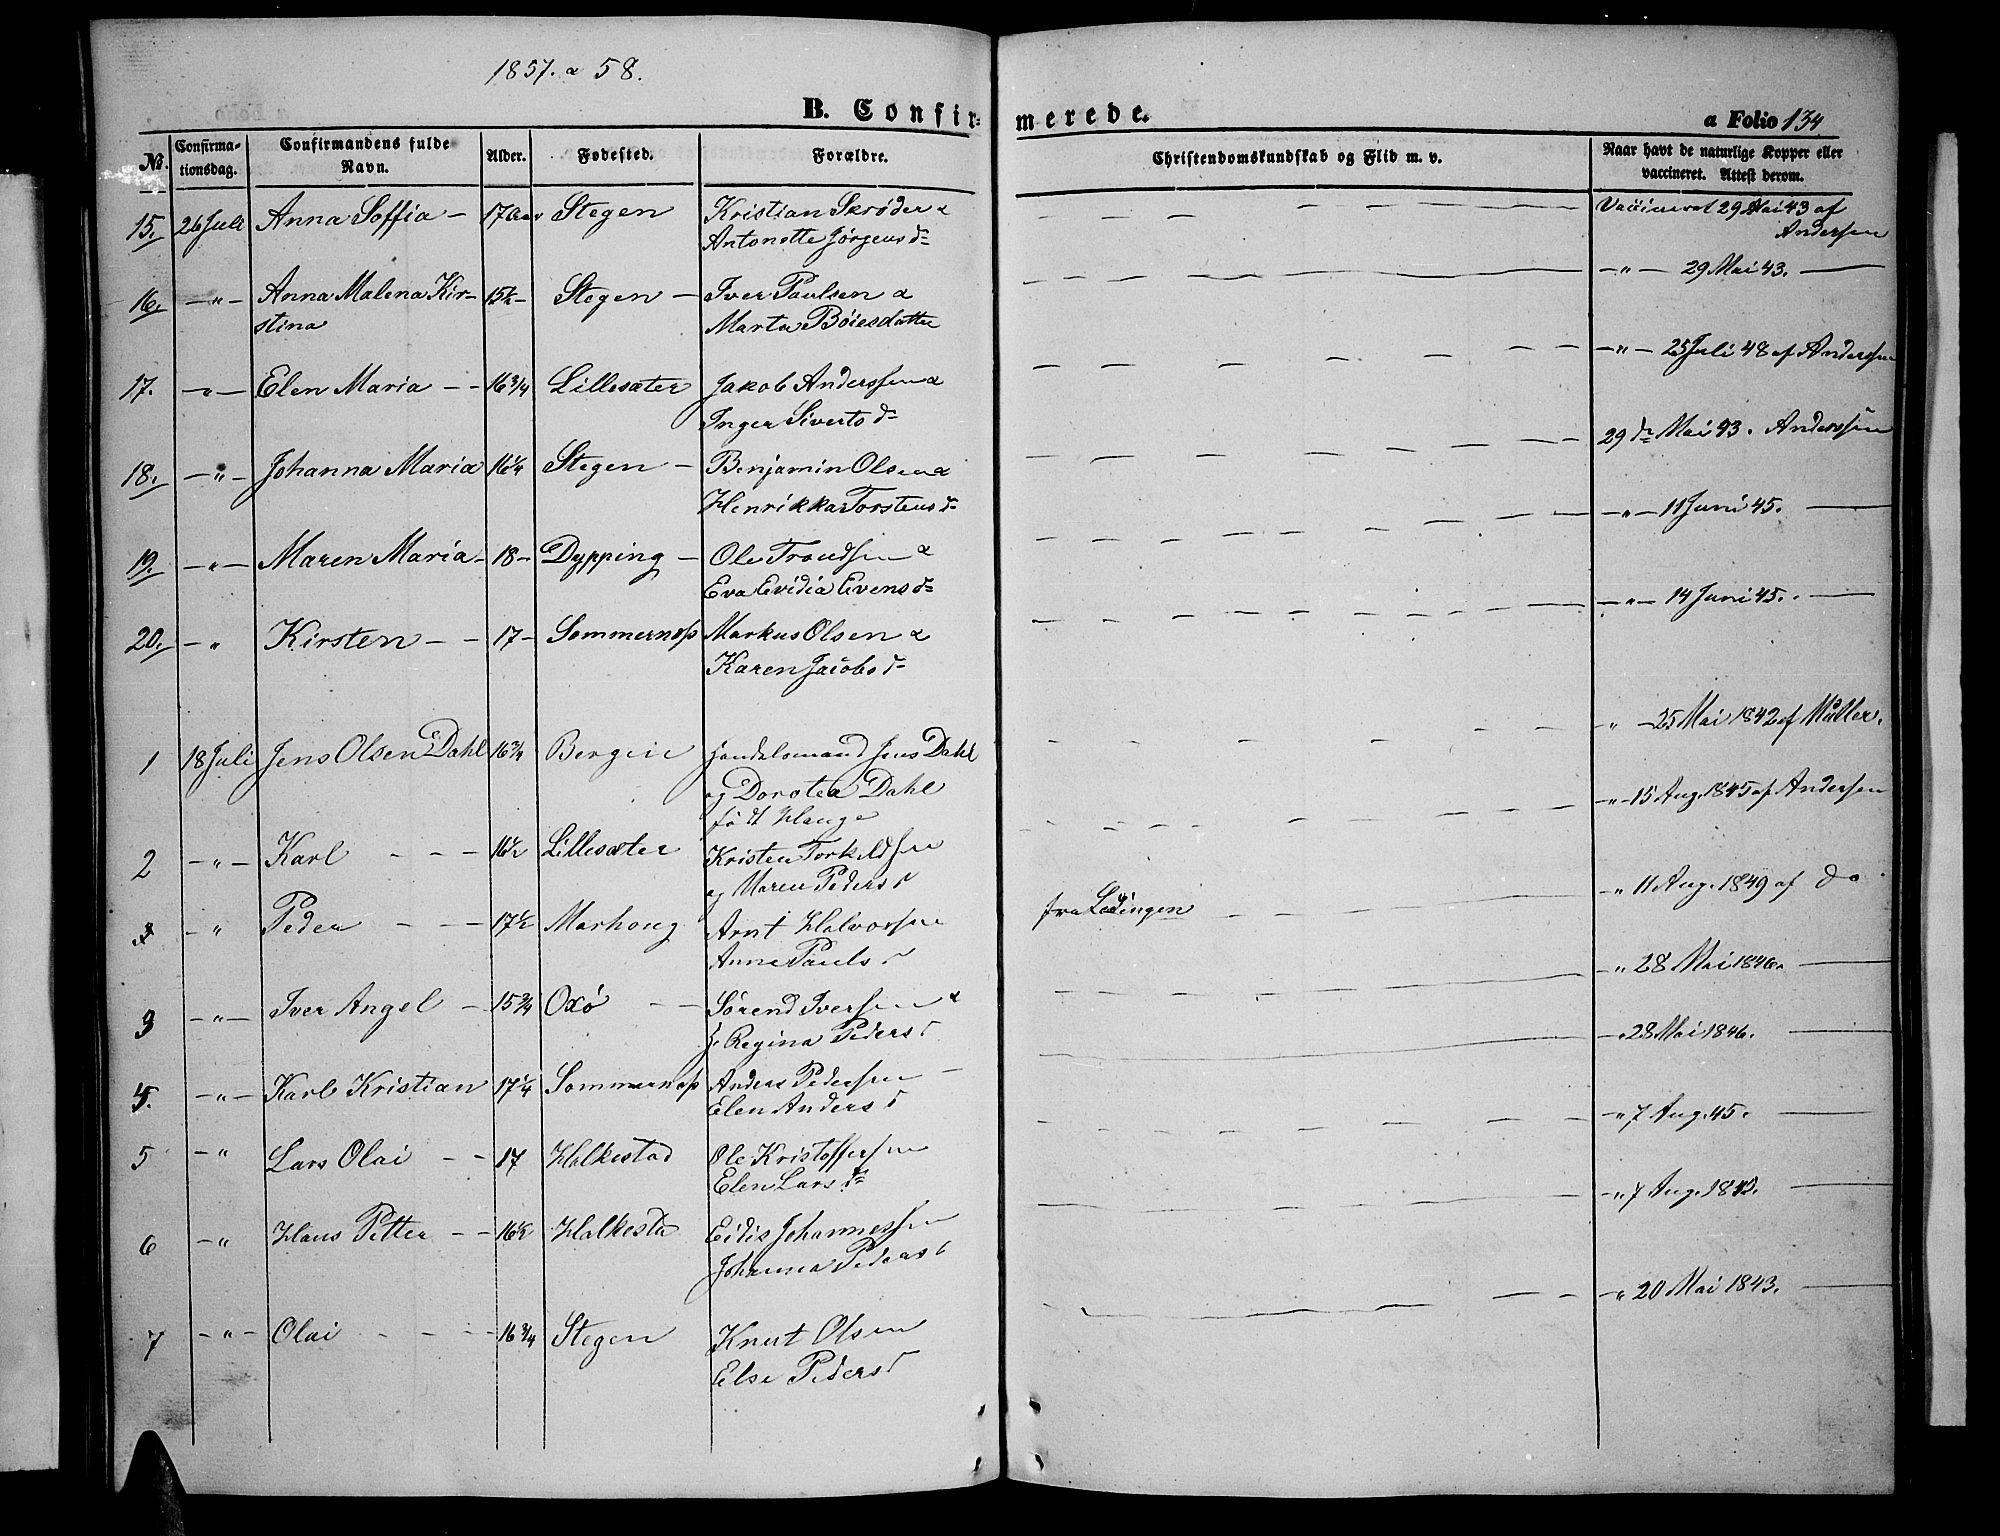 1857. & 58.
B. Confir-
merede.
a Folio 134
No.
Confirma-
tionsdag.
Confirmandens fulde
Navn.
Alder.
Fødested.
Forældre.
Christendomskundskab og Flid m. v.
Naar havt de naturlige Kopper eller
vaccineret. Attest derom.
15. 26 Juli Anna Soffia – 17 Aar Stegen Kristian Skrøder &
Antonette Jörgensd= Vaccineret 29 Mai 43 af
Andersen
16. –"– Anna Malena Kir- 15½– Stegen – Iver Paulsen &
stina Marta Böiesdatter –"– 29 Mai 43. –
17. –"– Elen Maria – – 16¾ Lillesæter Jakob Anderssen &
Inger Siverts d= –"– 25 Juli 48 af Anderssen
18. –"– Johanna Maria 16¼ Stegen – Benjamin Olsen &
Henrikka Torstens d= 29 d= Mai 43. Anderssen
19. –"– Maren Maria – 18 – Dypping – Ole Trondsen &
Eva Evidia Evens d= –"– 11 Juni 45. –
20. –" Kirsten – – 17 – Sommernæs Markus Olsen &
Karen Jacobs d= –"– 14 Juni 45. –
1 18 Juli Jens Olsen Dahl 16¾ Bergen Handelsmand Jens Dahl
og Dorotea Dahl
født Hauge " – 25 Mai 1842 af Müller.
2 –"– Karl – – – 16½ Lillesæter Kristen Torkildsen
og Maren Peders d –"– 15 Aug. 1845 af Andersen
–" Peder – – – 17½ Marhoug Arnt Halvorsen
Anne Pauls d fra Lødingen – – " 11 Aug. 1849 af do
3 –"– Iver Angel – 15¾ Oxö – – Sörend Iversen &
Regina Peders d –" 28 Mai 1846. –
4. –"– Karl Kristian 17¼ Sommernæs Anders Pedersen –
Elen Anders d –" 28 Mai 1846. –
5 –" Lars Olai – – 17 Halkestad Ole Kristoffersen
Elen Lars d= –" 7 Aug. 45. –
6 –" Hans Petter – – 16½ Halkesta Eidis Johannessen
Johanna Peders d –" 7 Aug.
7 –"– Olai – – – 16¾ Stegen Knut Olsen
Else Peders d –" 20 Mai 1843. –